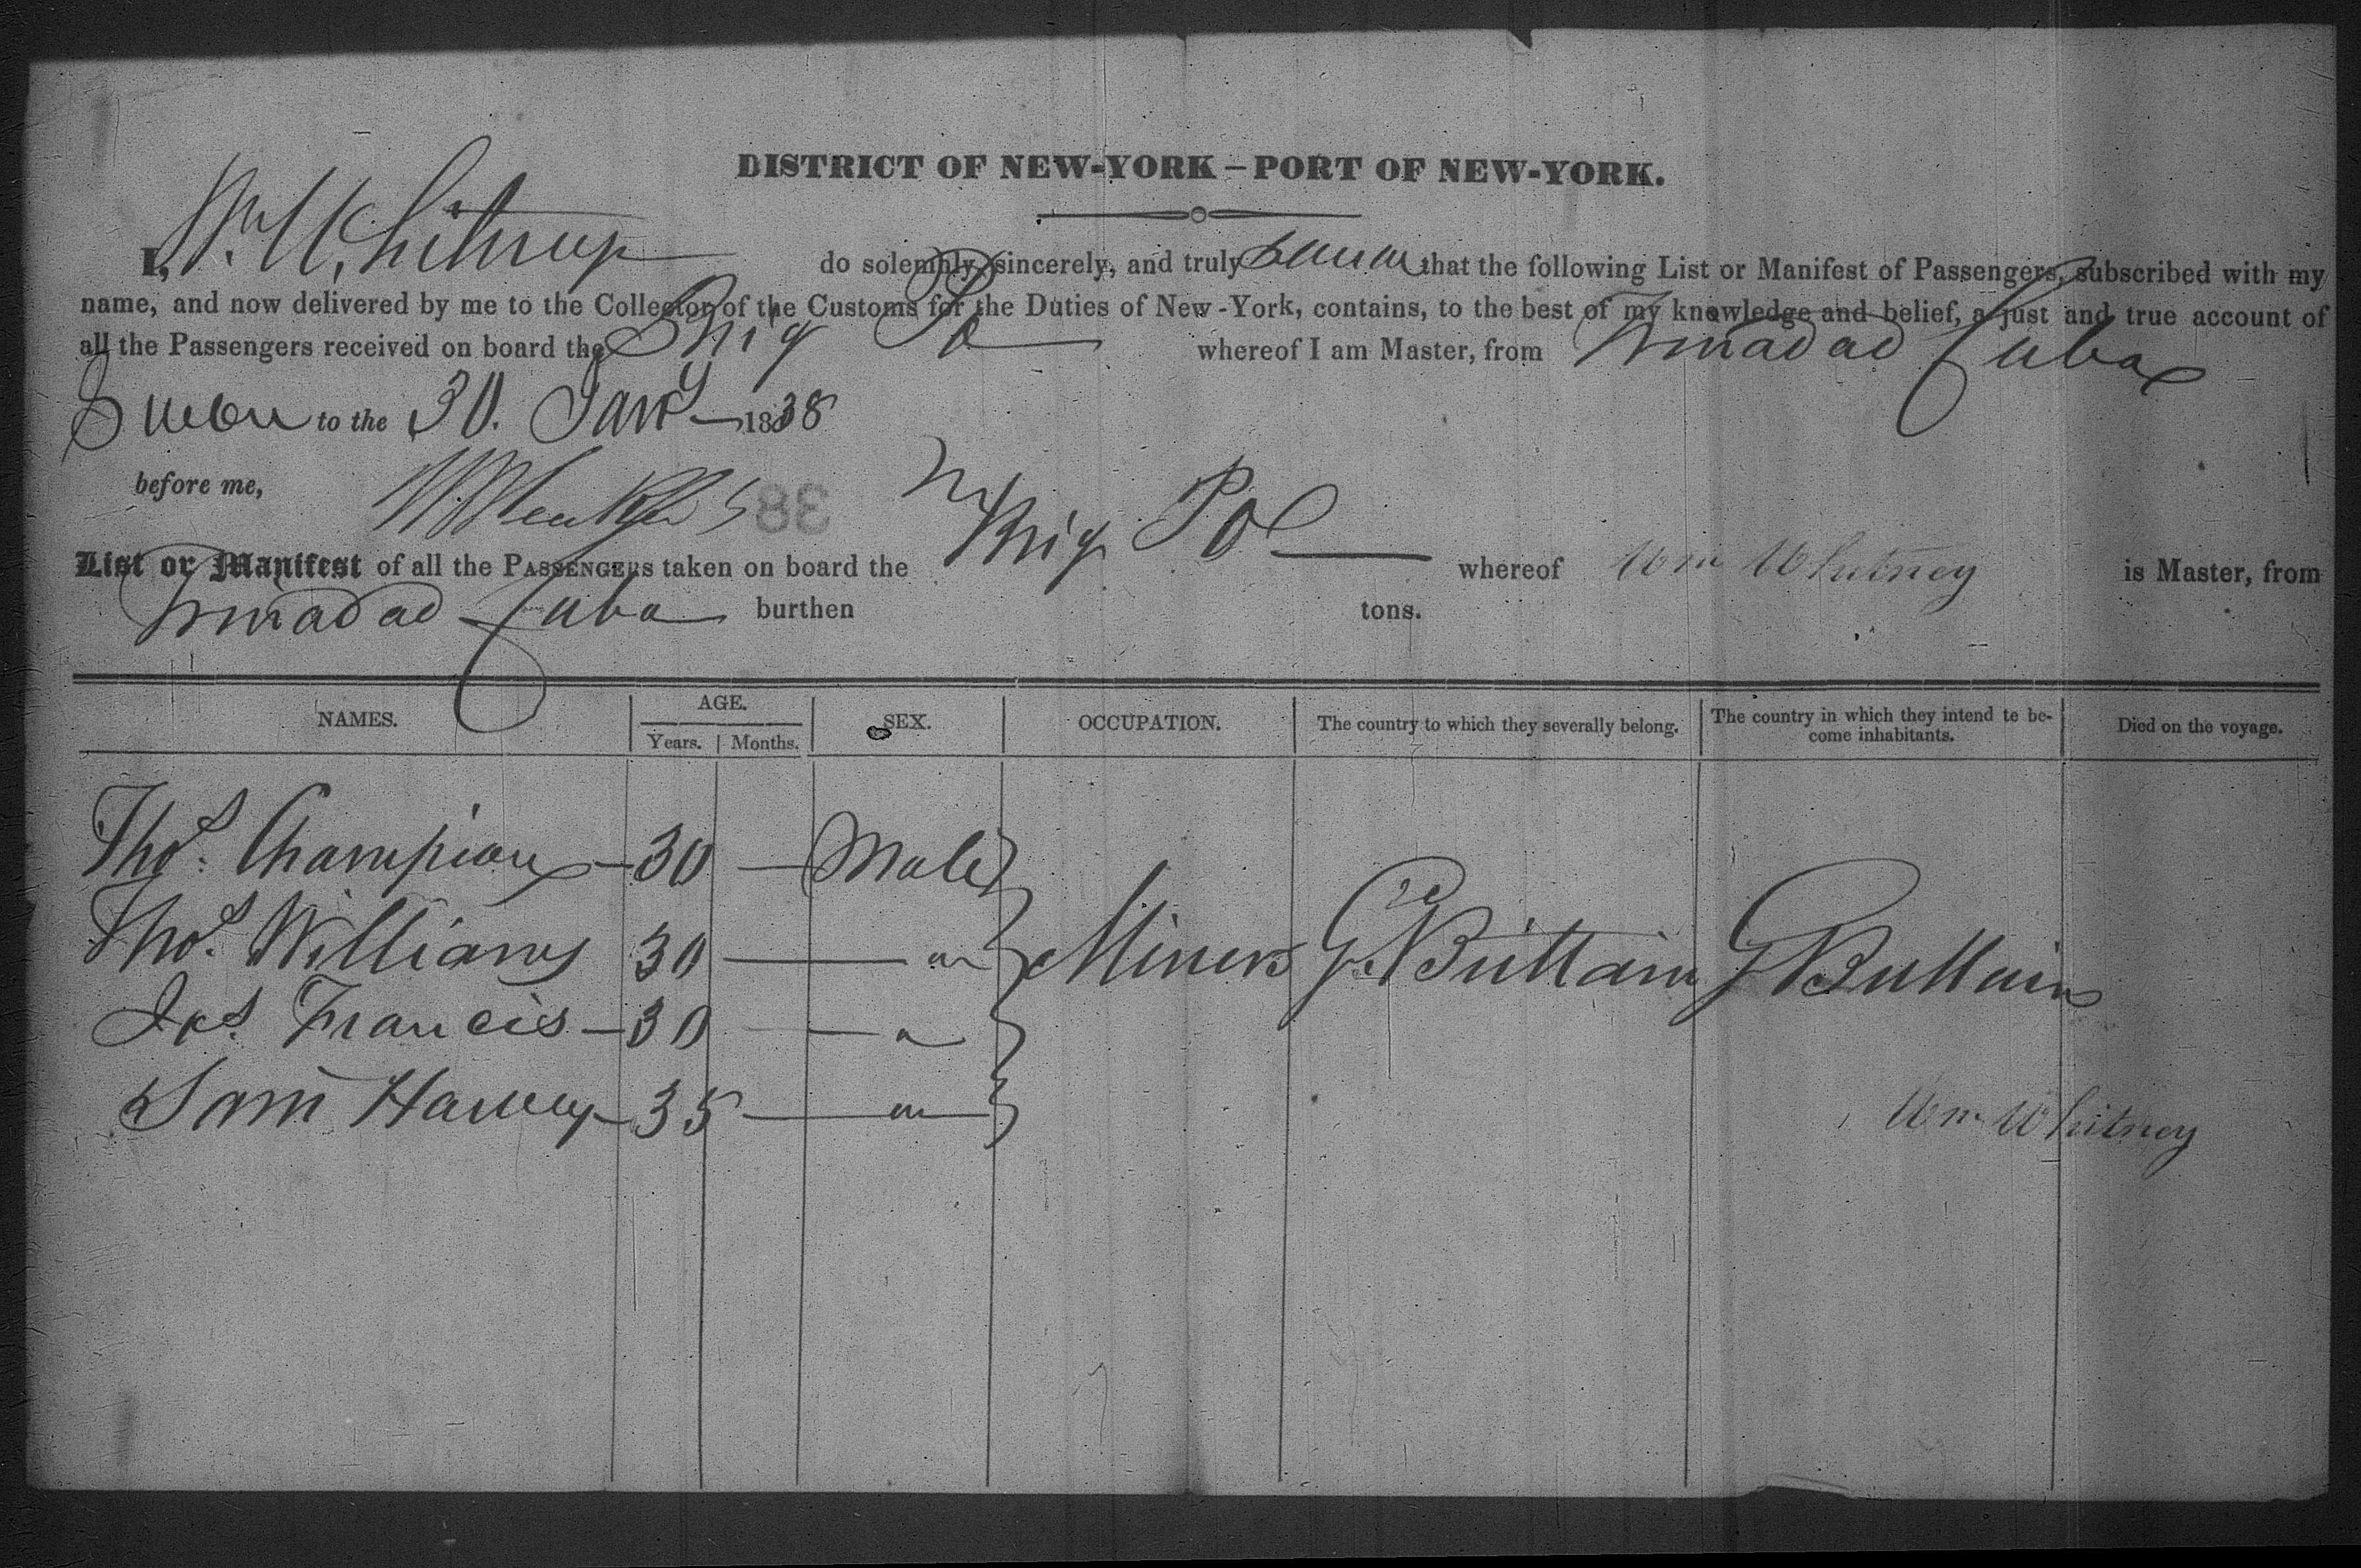 DISTRICT OF NEW-YORK – PORT OF NEW-YORK.
I, Wm Whitney do solemnly, sincerely, and truly swear that the following List or Manifest of Passengers, subscribed with my
name, and now delivered by me to the Collector of the Customs for the Duties of New-York, contains, to the best of my knowledge and belief, a just and true account of
all the Passengers received on board the Brig Po whereof I am Master, from Trinadad Cuba
Sworn to the 30. Jany 1838
before me,
38
List or Manifest of all the PASSENGERS taken on board the Brig Po whereof Wm Whitney is Master, from
Trinadad Cuba burthen tons.
NAMES. AGE. SEX. OCCUPATION. The country to which they severally belong. The country in which they intend te become inhabitants. Died on the voyage.
Years. Months.
Thos. Champion 30 Male
Thos. Williams 30 Miners Gt. Brittain G Brittain
Jas. Francis 30
Saml Harvey 35
Wm Whitney